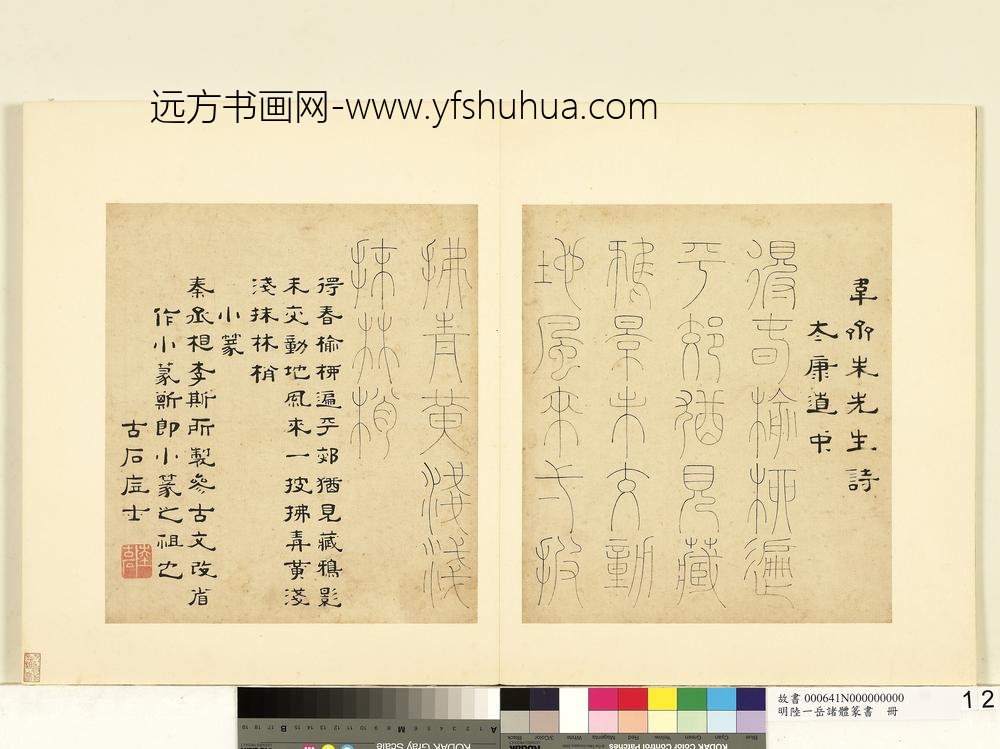 远方书画网-www.yfshuhua.com
韋齋朱先生詩
太康道中
得春榆柳遍
平郊猶見藏
鴉景未交動
地風來一披
拂青黃淺淺
抹林梢
得春榆柳遍平郊猶見藏鴉影
未交動地風來一披拂青黃淺
淺抹林梢
小篆
秦丞相李斯所製參古文改省
作小篆斯即小篆之祖也
古石居士
故書 000641N000000000
明陸一岳諸體篆書 冊
12
KODAK Gray Scale
Kodak Color Control Patches
Blue
Cyan
Green
Yellow
Red
Magenta
White
3/Color
Black